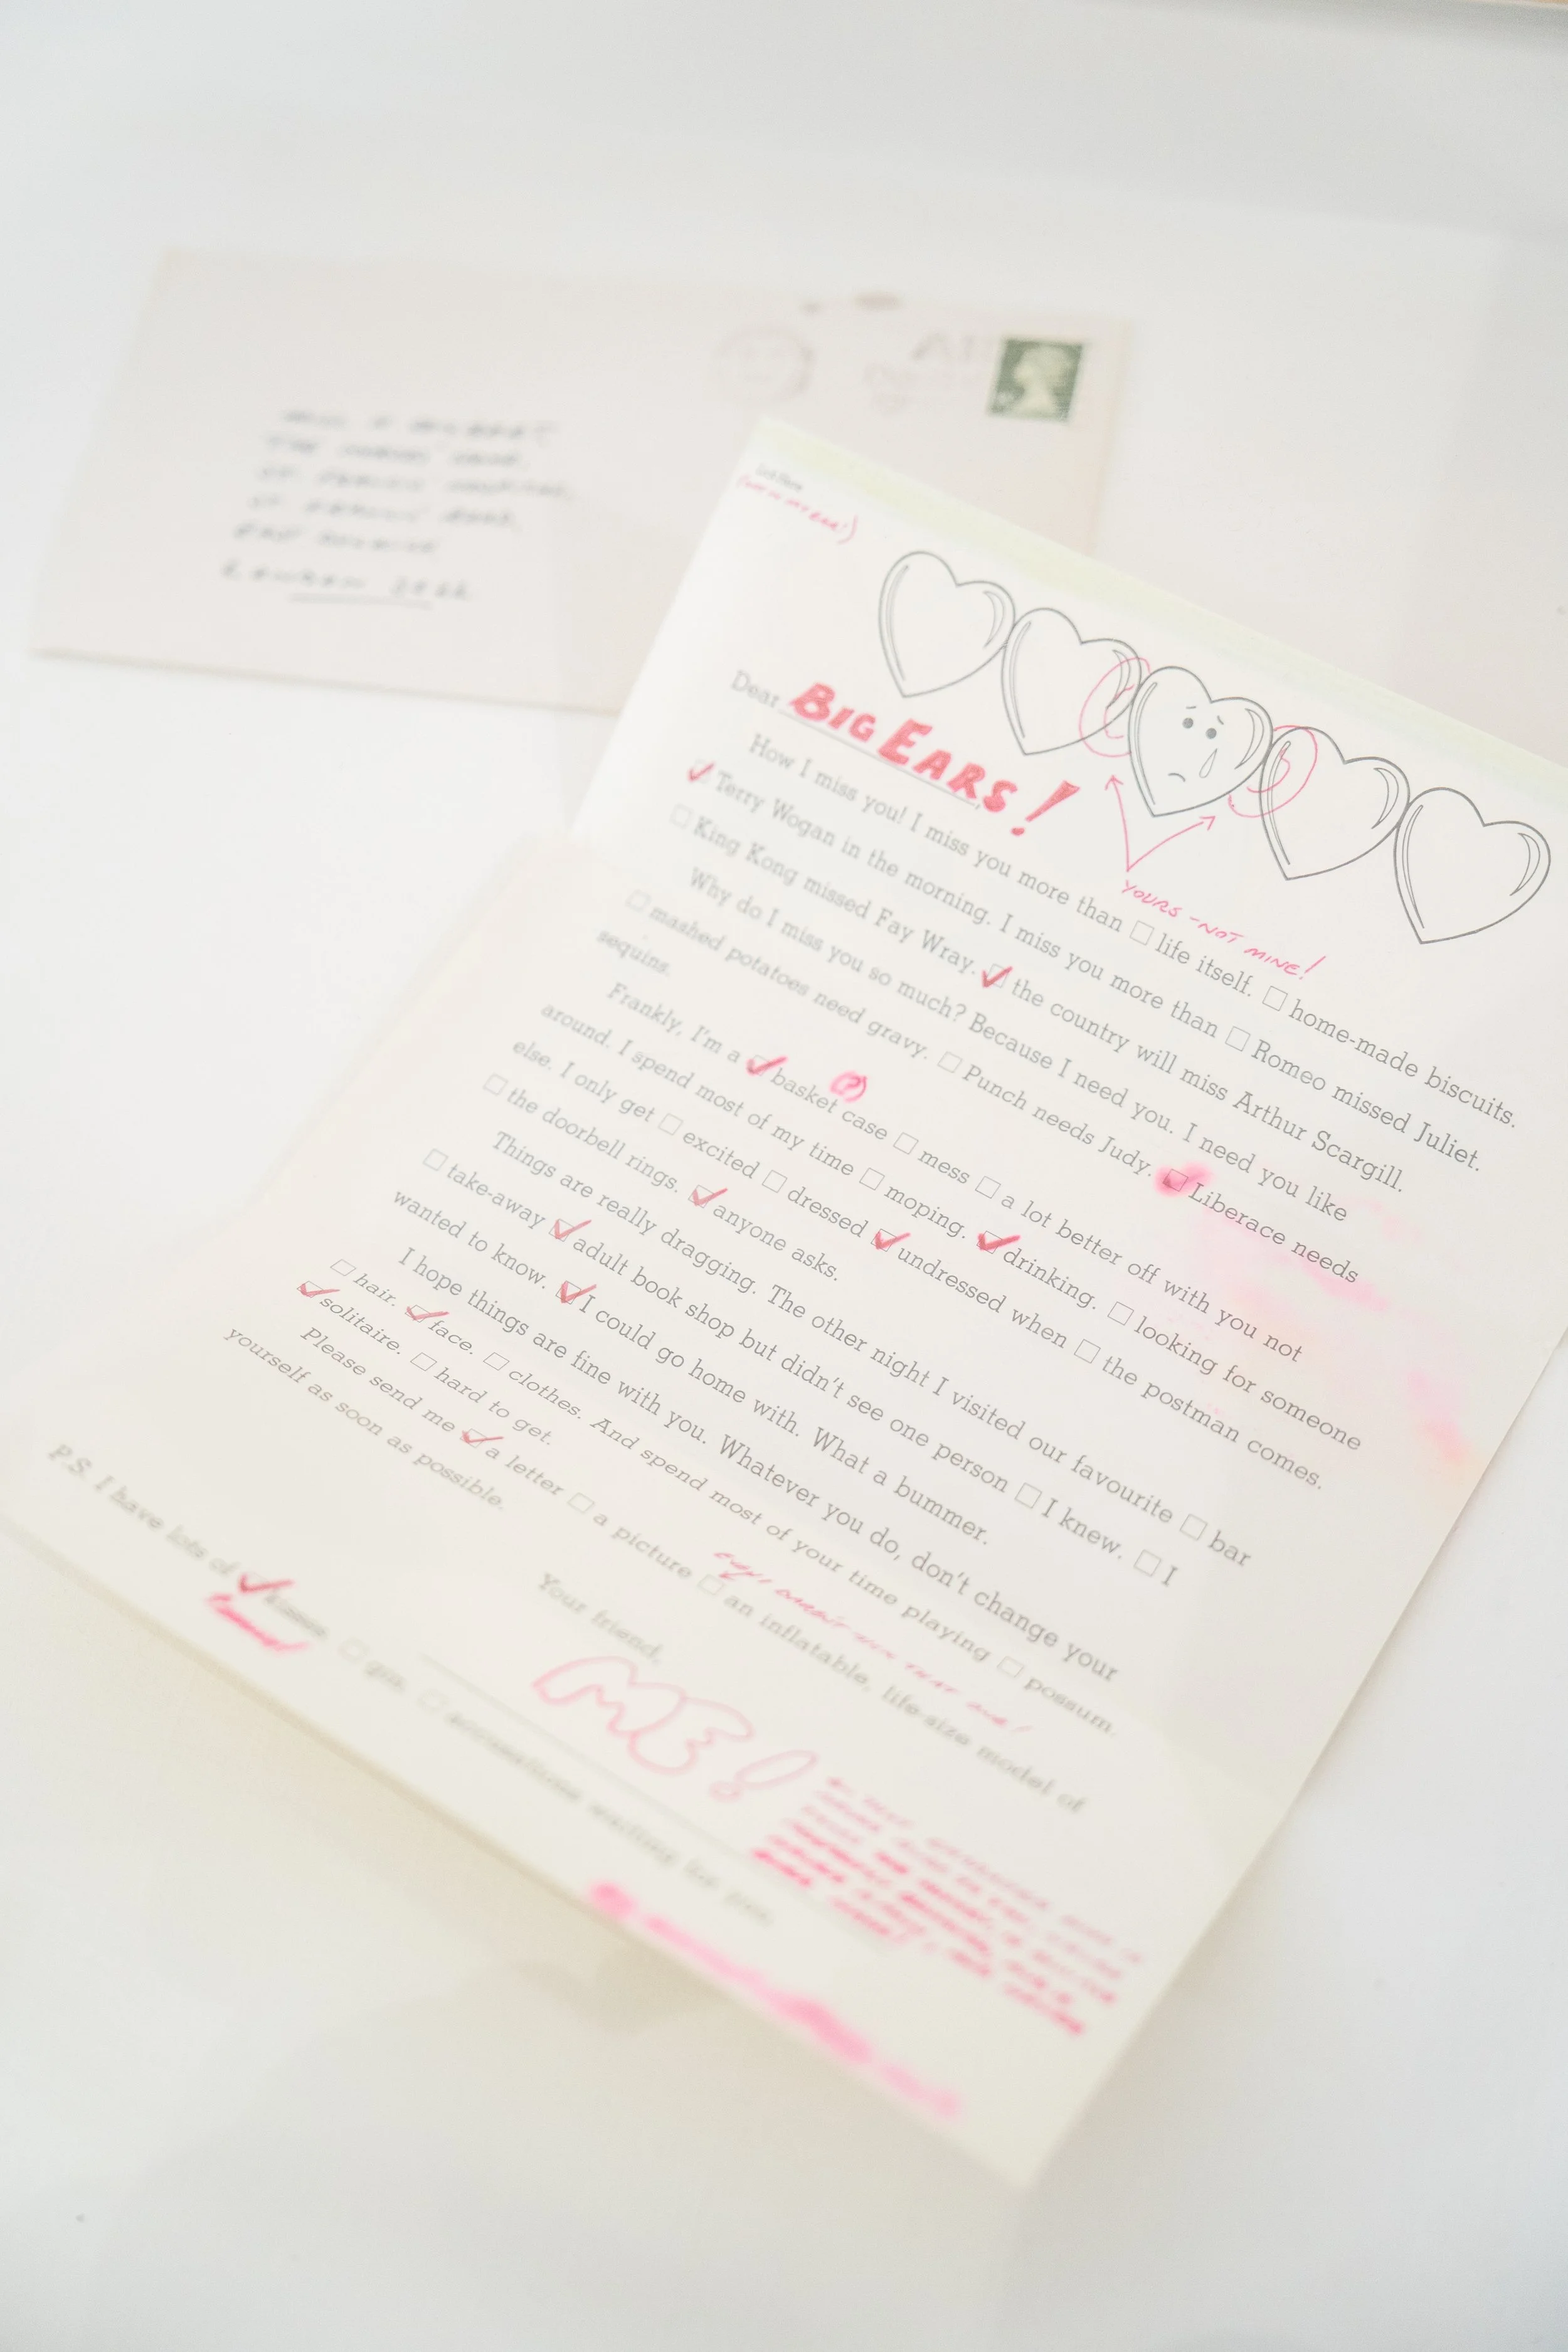 Dear BIG EARS!
YOURS - NOT MINE!
How I miss you! I miss you more than ☐ life itself. ☐ home-made biscuits.
☑ Terry Wogan in the morning. I miss you more than ☐ Romeo missed Juliet.
☐ King Kong missed Fay Wray. ☑ the country will miss Arthur Scargill.
Why do I miss you so much? Because I need you. I need you like
☐ mashed potatoes need gravy. ☐ Punch needs Judy. ☑ Liberace needs
sequins.
(?)
Frankly, I'm a ☑ basket case ☐ mess ☐ a lot better off with you not
around. I spend most of my time ☐ moping. ☑ drinking. ☐ looking for someone
else. I only get ☐ excited ☐ dressed ☑ undressed when ☐ the postman comes.
☐ the doorbell rings. ☑ anyone asks.
Things are really dragging. The other night I visited our favourite ☐ bar
☐ take-away ☑ adult book shop but didn't see one person ☐ I knew. ☐ I
wanted to know. ☑ I could go home with. What a bummer.
I hope things are fine with you. Whatever you do, don't change your
☐ hair. ☑ face. ☐ clothes. And spend most of your time playing ☐ possum.
☑ solitaire. ☐ hard to get.
Please send me ☑ a letter ☐ a picture ☐ an inflatable, life-size model of
yourself as soon as possible.
Your friend,
ME!
P.S. I have lots of ☑ kisses ☐ gin. ☐ waiting for you.